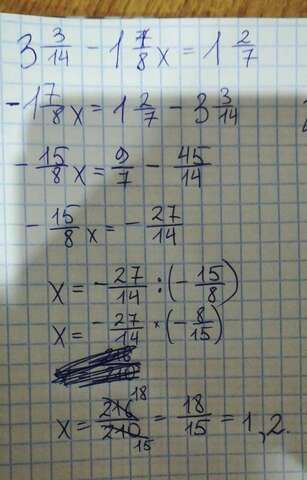 3 3/14 - 1 7/8 x = 1 2/7
-1 7/8 x = 1 2/7 - 3 3/14
-15/8 x = 9/7 - 45/14
-15/8 x = -27/14
x = -27/14 : (-15/8)
x = -27/14 * (-8/15)
x = 216/210 18/15 = 18/15 = 1,2.